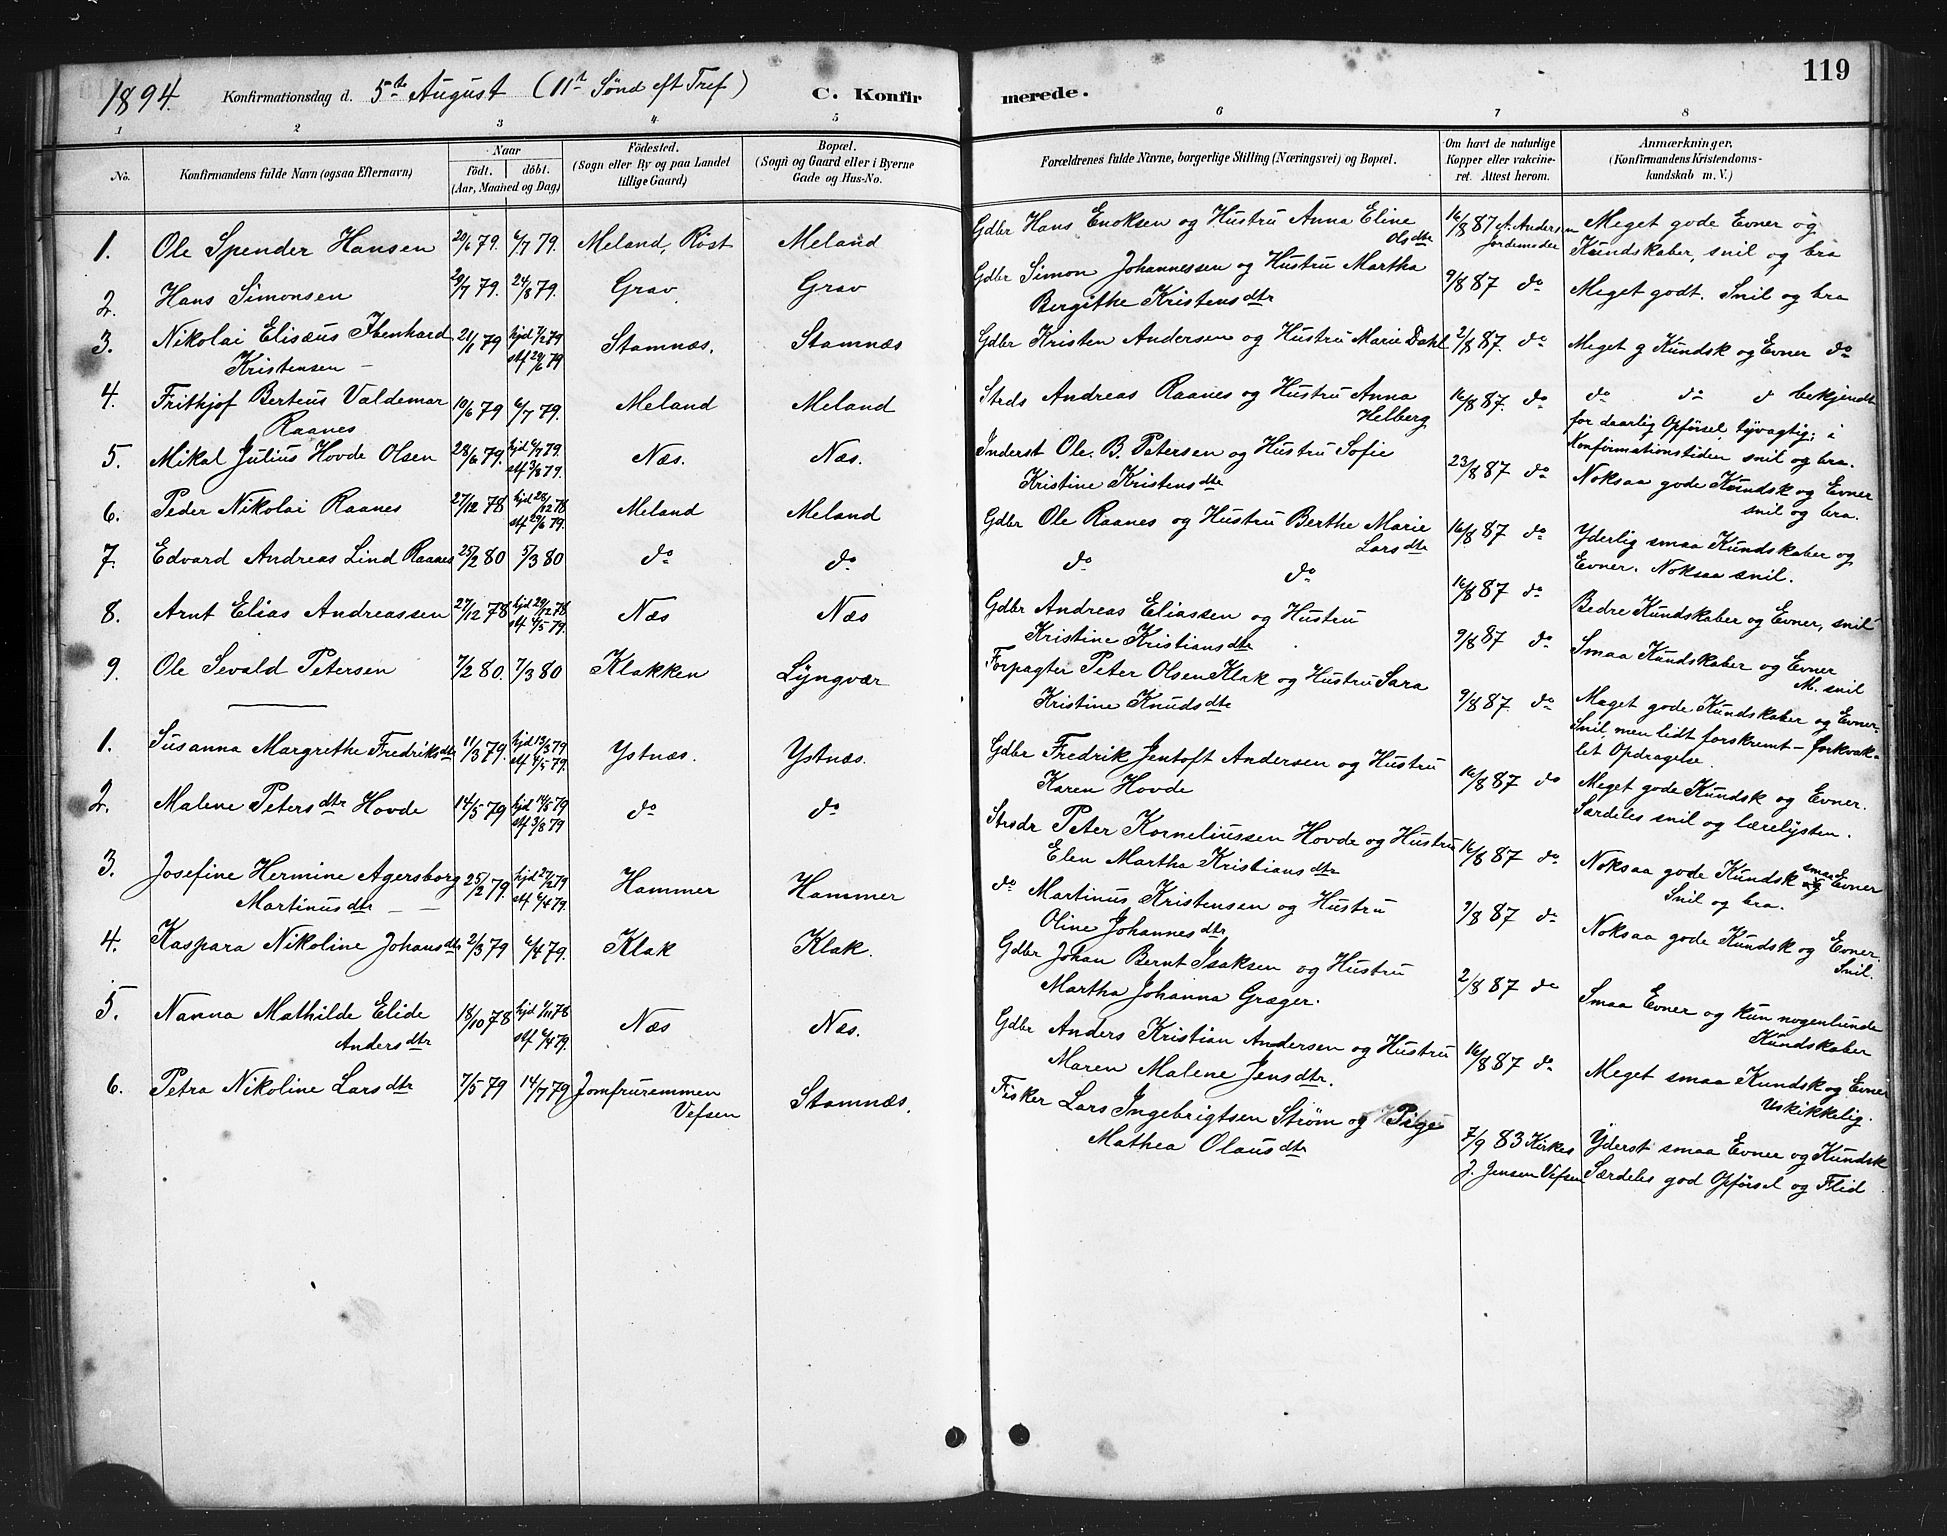 119
1894. Konfirmationsdag d. 5te August (11te Sønd eft Tref) C. Konfirmerede.
1 2 3 4 5 6 7 8
No. Konfirmandens fulde Navn (ogsaa Efternavn) Naar födt. döbt. (Aar, Maaned og Dag) Födested. (Sogn eller By og paa Landet tillige Gaard) Bopæl. (Sogn og Gaard eller i Byerne Gade og Hus-No. Forældrenes fulde Navne, borgerlige Stilling (Næringsvei) og Bopæl. Om havt de naturlige Kopper eller vakcineret. Attest herom. Anmærkninger, (Konfirmandens Kristendomskundskab m. V.)
1. Ole Spender Hansen 20/6 79. 6/7 79. Meland, Røst Meland Gdbr Hans Enoksen og Hustru Anna Eline Olsdtr 16/8 87 A. Andersen Jordemoder Meget gode Evner og Kundskaber, snil og bra
2. Hans Simonsen 29/7 79. 24/8 79. Grav Grav Gdbr Simon Johannessen og Hustru Martha Bergithe Kristensdtr 9/8 87 do Meget godt. Snil og bra
3. Nikolai Elisæus Ibenhard Kristensen 21/1 79 hjd 7/2 79 stf 29/6 79 Stamnæs. Stamnæs Gdbr Kristen Andersen og Hustru Marie Dahl 2/8 87. do Meget g Kundsk og Evner do
4. Frithjof Berteus Valdemar Raanes 10/6 79 6/7 79. Meland Meland Strds Andreas Raanes og Hustru Anna Helberg 16/8 87. do do do d bekjendt for daarlig Opførsel, tyvagtig; i Konfirmationstiden snil og bra.
5. Mikal Julius Hovde Olsen 28/6 79. hjd 6/7 79. stf 3/8 79. Næs. Næs. Inderst Ole B. Petersen og Hustru Sofie Kristine Kristensdtr 23/8 87 do Noksaa gode Kundsk og Evner snil og bra.
6. Peder Nikolai Raanes 27/12 78 hjd 28/12 78 stf 29/6 79. Meland Meland Gdbr Ole Raanes og Hustru Berthe Marie Larsdtr 16/8 87 do Yderlig smaa Kundskaber og Evner. Noksaa snil.
7. Edvard Andreas Lind Raanes 25/2 80 5/3 80 do do do do 16/8 87 do Bedre Kundskaber og Evner, snil
8. Arnt Elias Andreassen 27/12 78 hjd 29/12 78 stf 4/5 79. Næs Næs Gdbr Andreas Eliassen og Hustru Kristine Kristiansdtr 9/8 87 do Smaa Kundskaber og Evner M. snil
9. Ole Sevald Petersen 7/2 80. 7/3 80 Klakken Lyngvær Forpagter Peter Olsen Klak og Hustru Sara Kristine Knudsdtr 9/8 87. do Meget gode Kundskaber og Evner. Snil, men lidt forskremt – forkvaklet Opdragelse.
1. Susanna Margrethe Fredriksdtr 11/3 79. hjd 13/3 79 stf 4/5 79. Ystnæs. Ystnæs. Gdbr Fredrik Jentoft Andersen og Hustru Karen Hovde 16/8 87 do Meget gode Kundsk og Evner. Særdeles snil og lærelysten.
2. Malene Petersdtr Hovde 14/5 79 hjd 14/5 79 stf 3/8 79 do do Strsdr Peter Korneliussen Hovde og Hustru Elen Martha Kristiansdtr 16/8 87 do Noksaa gode Kundsk og smaa Evner Snil og bra.
3. Josefine Hermine Agersborg Martinusdtr 25/2 79. hjd 27/2 79 stf 6/4 79. Hammer Hammer do Martinus Kristensen og Hustru Oline Johannesdtr 9/8 87 do Noksaa gode Kundsk og Evner. Snil.
4. Kaspara Nikoline Johansdtr 2/3 79 6/4 79. Klak Klak. Gdbr Johan Bernt Isaksen og Hustru Martha Johanna Græger. 2/8 87 do Smaa Evner og kun nogenlunde Kundskaber
5. Nanna Mathilde Elide Andersdtr 18/10 78 hjd 1/11 78 stf 6/4 79. Næs Næs. Gdbr Anders Kristian Andersen og Hustru Maren Malene Jensdtr. 16/8 87 do Meget smaa Kundsk og Evner Uskikkelig.
6. Petra Nikoline Larsdtr 7/5 79 14/7 79 Jomfruremmen Vefsen Stamnæs. Fisker Lars Ingebrigtsen Strøm og Pige Mathea Olausdtr 7/9 83 Kirkes J. Jensen Vefsen Yderst smaa Evner og Kundsk Særdeles god Opførsel og Flid